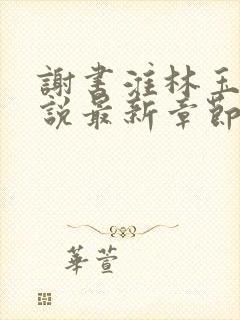 謝書淮林玉
說最新章節
華萱